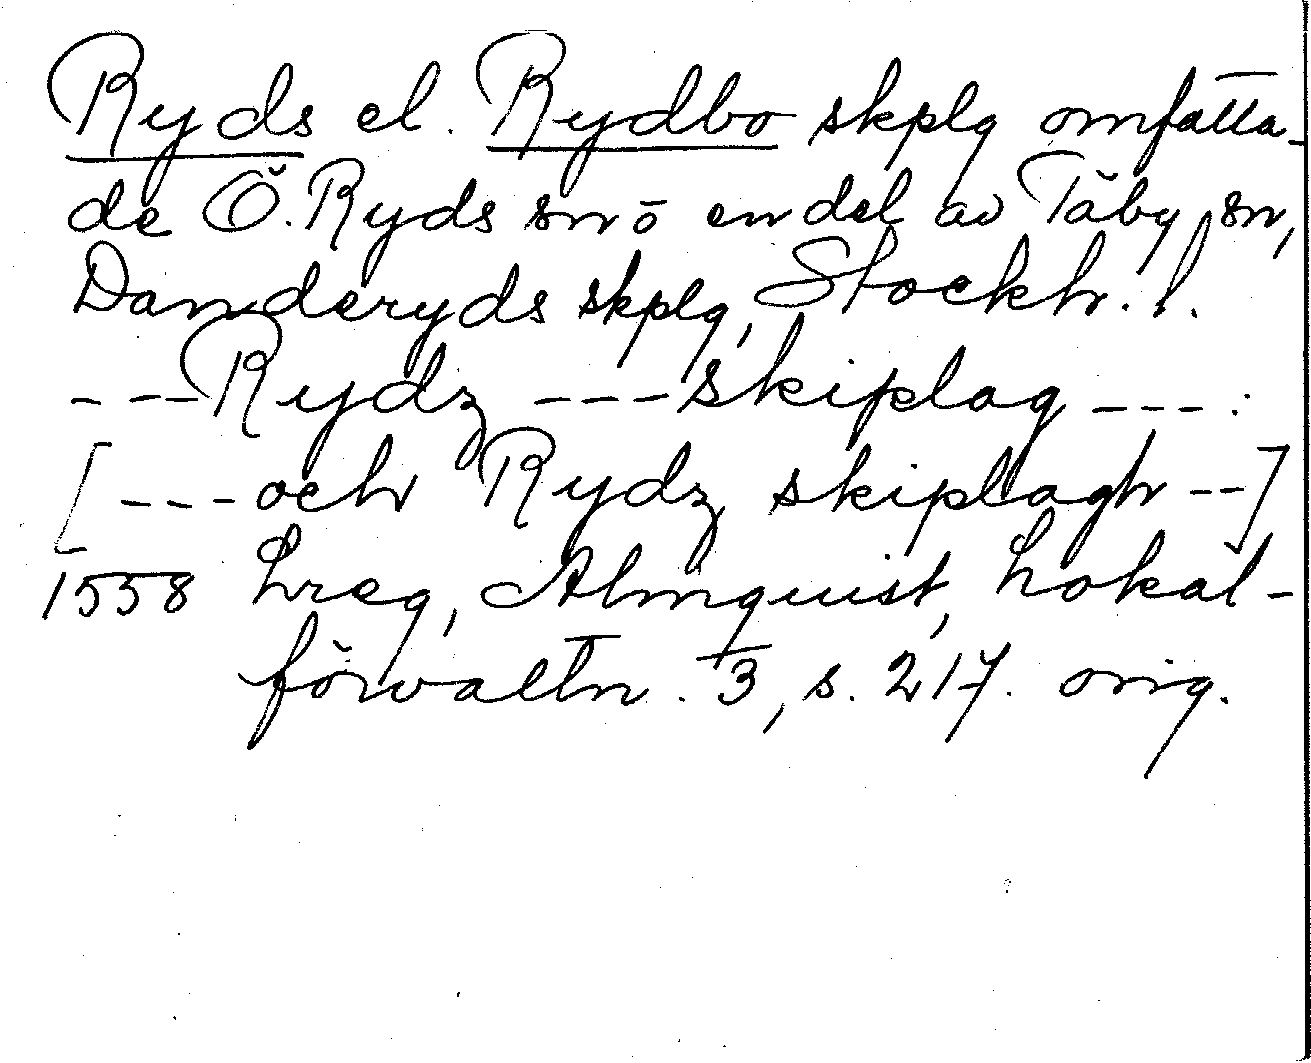 Ryds el. Rydbo skplg omfatta-
de Ö. Ryds sn o en del av Täby sn,
Danderyds skplg, Stockh. l.
---Rydz ---skiplag ---:
[---och Rydz skiplagh --]
1558 Lreg, Almquist, Lokal-
förvaltn. 3, s. 217. orig.